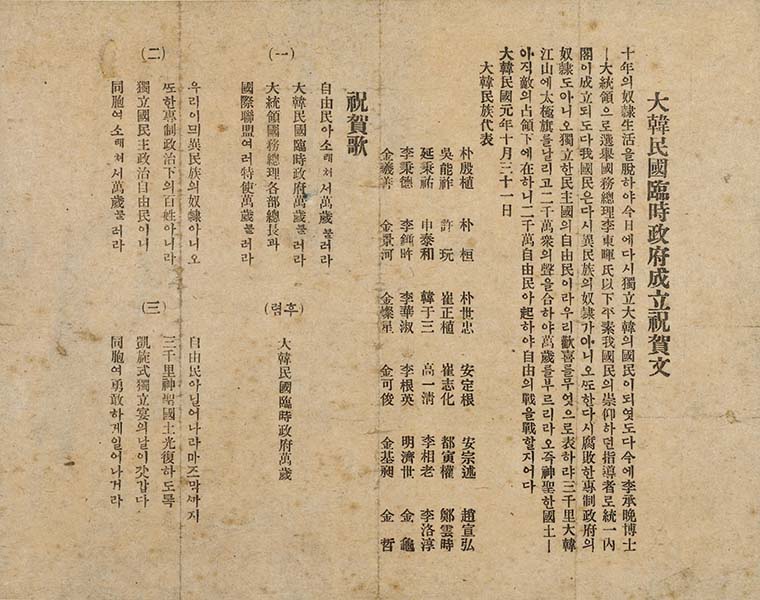 大韓民國臨時政府成立祝賀文
十年의奴隷生活을脫하야今日에다시獨立大韓의國民이되엿도다今에李承晩博士
ㅣ大統領으로選擧國務總理李東輝氏以下平素我國民의崇仰하던指導者로統一內
閣이成立되도다我國民은다시異民族의奴隷가아니오ᄯᅩ한다시腐敗한專制政府의
奴隷도아니오獨立한民主國의自由民이라우리歡喜를무엇으로表하랴三千里大韓
江山에太極旗를날리고二千萬衆의聲을合하야萬歲를부르리라오즉神聖한國土ㅣ
아직敵의占領下에在하니二千萬自由民아起하야自由의戰을戰할지어다
大韓民國元年十月三十一日
大韓民族代表
朴殷植 朴桓 朴世忠 安定根 安宗述 趙宣弘
吳能祚 許玩 崔正植 崔志化 都寅權 鄭雲時
延秉祐 申泰和 韓于三 高一淸 李相老 李洛淳
李秉德 李鍾旿 李華淑 李根英 明濟世 金龜
金羲善 金景河 金燦星 金可俊 金基昶 金哲
祝賀歌
(一)
自由民아소래쳐서萬歲불러라
大韓民國臨時政府萬歲불러라
大統領國務總理各部總長과
國際聯盟여러特使萬歲불러라
(후렴)
大韓民國臨時政府萬歲
(二)
우리이믜異民族의奴隷아니오
ᄯᅩ한專制政治下의百姓아니라
獨立國民主政治自由民이니
同胞여소래쳐서萬歲불러라
(三)
自由民아닐어나라마즈막ᄭᅡ지
三千里神聖國土光復하도록
凱旋式獨立宴의날이갓갑다
同胞여勇敢하게일어나거라